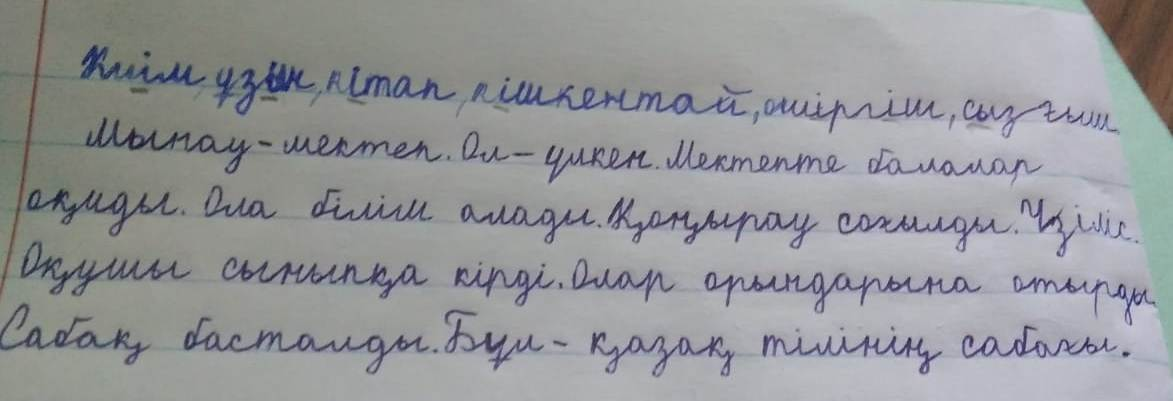 Киім, ұзын, кітап, кішкентай, өшіргіш, сызғыш
Мынау-мектеп. Ол - үлкен. Мектепте балалар
оқиды. Ола білім алады. Қоңырау соғылды. Үзіліс.
Оқушы сыныпқа кірді. Олар орындарына отырды
Сабақ басталды. Бұл - қазақ тілінің сабағы.